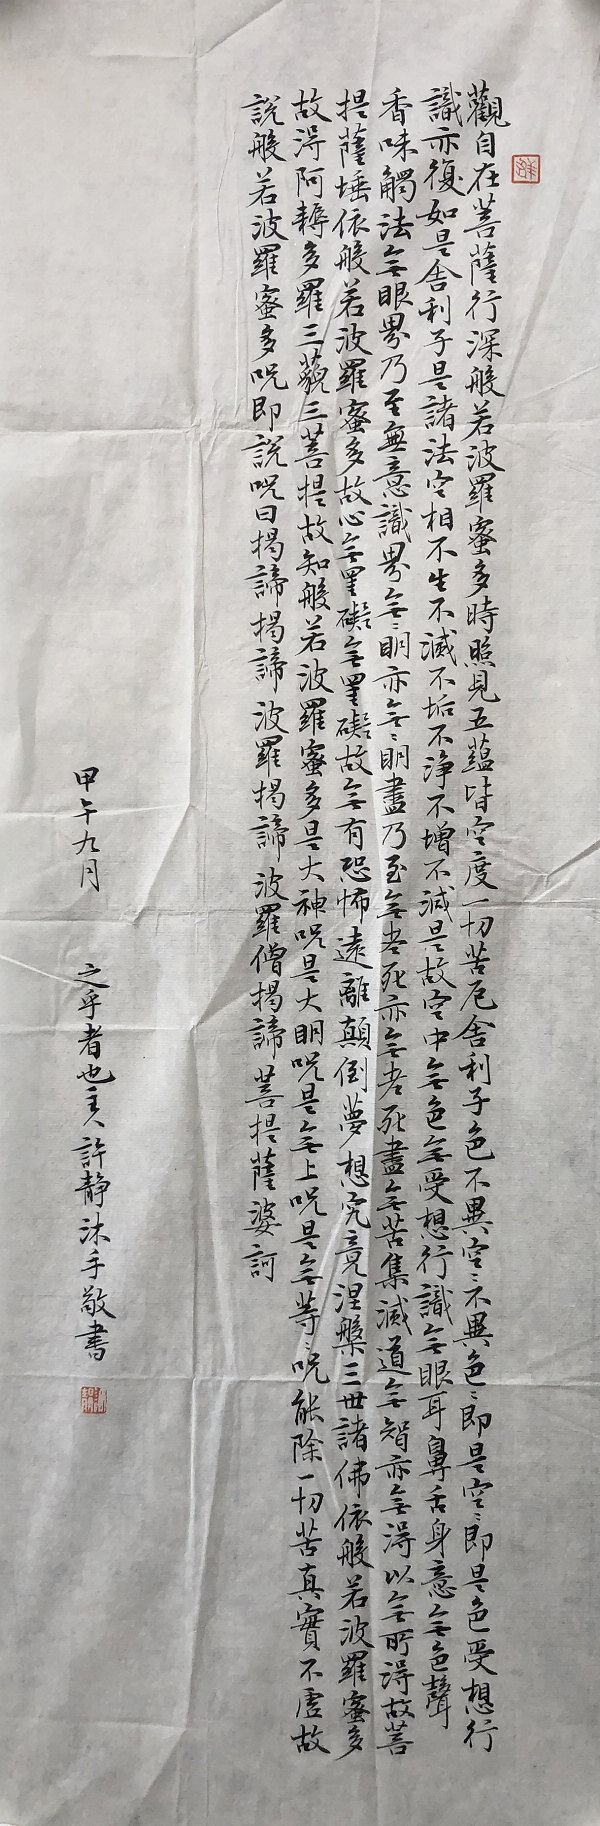 觀自在菩薩行深般若波羅蜜多時照見五蘊皆空度一切苦厄舍利子色不異空〻不異色〻即是空〻即是色受想行
識亦復如是舍利子是諸法空相不生不滅不垢不淨不增不減是故空中無色無受想行識無眼耳鼻舌身意無色聲
香味觸法無眼界乃至無意識界無〻明亦無〻明盡乃至無老死亦無老死盡無苦集滅道無智亦無得以無所得故菩
提薩埵依般若波羅蜜多故心無罣礙無罣礙故無有恐怖遠離顛倒夢想究竟涅槃三世諸佛依般若波羅蜜多
故得阿耨多羅三藐三菩提故知般若波羅蜜多是大神咒是大明咒是無上咒是無等〻咒能除一切苦真實不虛故
說般若波羅蜜多咒即說咒曰揭諦揭諦波羅揭諦波羅僧揭諦菩提薩婆訶
甲午九月 之乎者也主人許靜沐手敬書